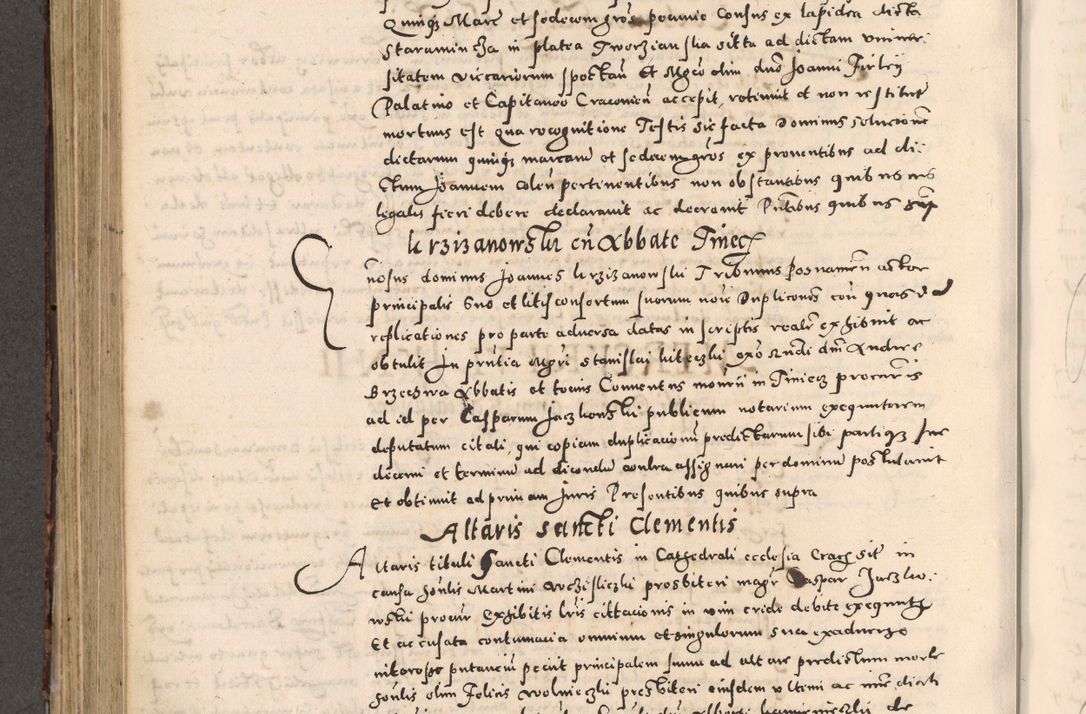 Quinque Marc et sedecem gros pecunie Census ex lapidea dicta
Staramincza in platea Tworzianska sitta ad dictam univer:
sitatem vicariorum spectan Et Mgco olim dno Joanni Firley
Palatino et Capitaneo Cracovien accepit, retinuit et non restituit
mortuus est qua recognitione Testis sic facta Dominus solucionem
dictarum quinque marcarum et sedecem gros ex proventibus ad di:
ctum Joannem olen pertinentibus non obstantibus quibusvis
legalis fieri debere declaravit ac decrevit Pntibus quibus supra
Krzizanowski cum Abbate Tinecz
nosus dominus Joannes Krzizanowski Tribunus Posnanien actor
principalis suo et litis consortum suorum noie Duplicones con
replicationes pro parte adversa datas in scriptis realr exhibuit ac
obtulit In pntia Mgri Stanislai dni Andree
Brzechwa Abbatis et totius Conventus monrii in Tiniecz procuris
ad id per Casparum Jaczkowski publicum notarium exequutorem
deputatum citati, qui copiam duplicacionum predictarum sibi partique sue
decerni et terminum ad dicendum contra assignari per dominum postulavit
Et obtinuit ad primam Juris Presentibus quibus supra
Altaris Sancti Clementis
Altaris tituli Sancti Clementis in Cathedrali ecclesia Crac sit in
causa honlis Martini presbiteri magr Caspar Jaczko:
wski procur Exhibitis lris cittacionis in vim cride debite exequutis
Et accusata contumacia omnium et singulorum sua exadverso
putancium peciit principalem suum ad altare predictum morte
honlis olim Felicis Wolnieczki presbiteri eiusdem ultimi ac imme diati